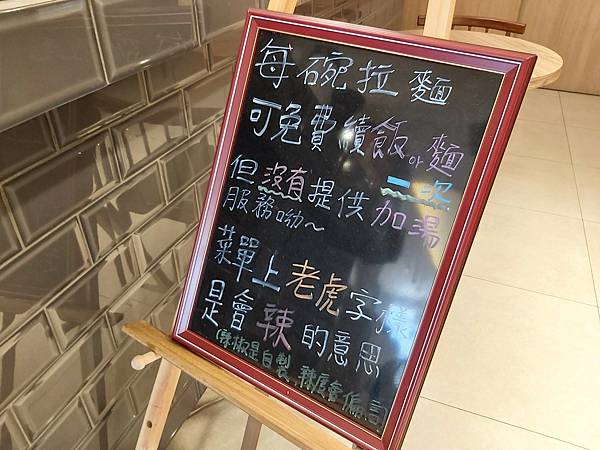 每碗拉麵
可免費續飯or麵一次
但沒有提供加湯
服務呦～
菜單上老虎字樣
是會辣的意思
(辣椒是自製、辣度會偏高)